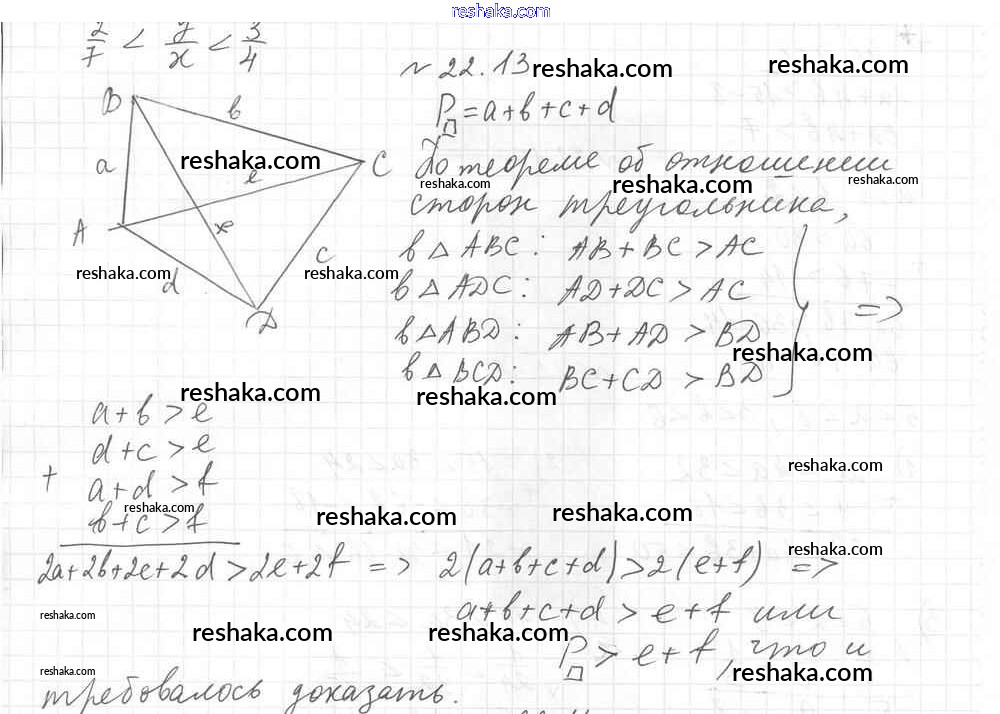 reshaka.com
2/7 < y/x < 3/4
№ 22.13
reshaka.com
reshaka.com
P□ = a+b+c+d
По теореме об отношении
сторон треугольника,
reshaka.com
reshaka.com
reshaka.com
reshaka.com
B
b
a
C
e
A
f
c
d
D
reshaka.com
reshaka.com
в △ ABC: AB + BC > AC
в △ ADC: AD + DC > AC
в △ ABD: AB + AD > BD
в △ BCD: BC + CD > BD
=>
reshaka.com
reshaka.com
reshaka.com
a+b > e
d+c > e
+
a+d > f
b+c > f
reshaka.com
reshaka.com
reshaka.com
reshaka.com
2a+2b+2c+2d > 2e+2f => 2(a+b+c+d) > 2(e+f) =>
reshaka.com
a+b+c+d > e+f или
reshaka.com
reshaka.com
reshaka.com
P□ > e+f, что и
reshaka.com
reshaka.com
требовалось доказать.